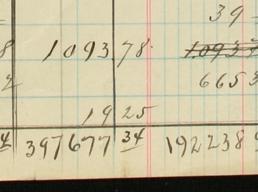 39
8 1093 78 1093
2 6653
19 25
4 397677 34 192238 9